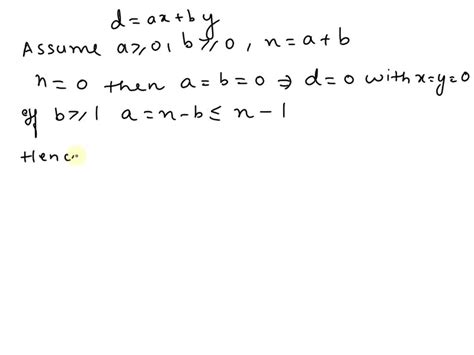 d = ax + by
Assume a ≥ 0, b ≥ 0, n = a + b
n = 0 then a = b = 0 ⇒ d = 0 with x = y = 0
If b ≥ 1 a = n - b ≤ n - 1
Henc